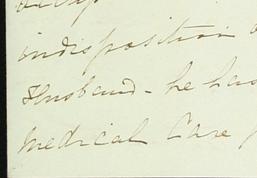 indisposition
Husband - he has
Medical Care